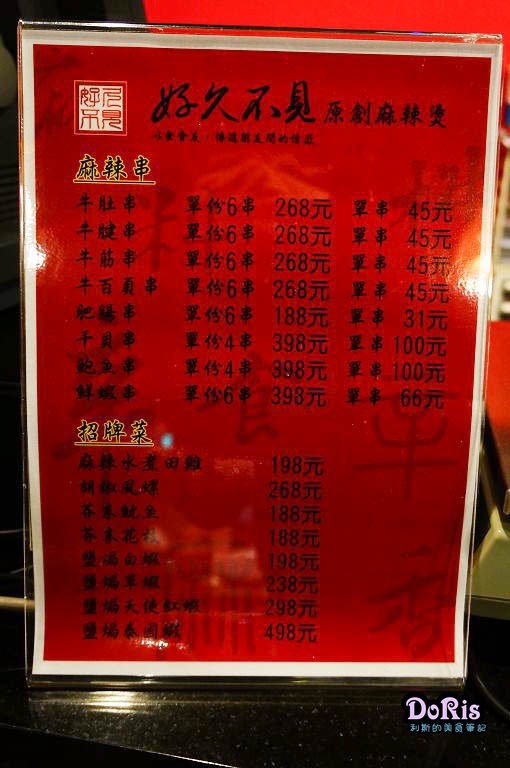 好久不見
好久不見 原創麻辣燙
以食會友，傳遞朋友間的情感
麻辣串
牛肚串 單份6串 268元 單串 45元
牛腱串 單份6串 268元 單串 45元
牛筋串 單份6串 268元 單串 45元
牛百頁串 單份6串 268元 單串 45元
肥腸串 單份6串 188元 單串 31元
干貝串 單份4串 398元 單串 100元
鮑魚串 單份4串 398元 單串 100元
鮮蝦串 單份6串 398元 單串 66元
招牌菜
麻辣水煮田雞 198元
胡椒風螺 268元
芥末魷魚 188元
芥末花枝 188元
鹽焗白蝦 198元
鹽焗草蝦 238元
鹽焗天使紅蝦 298元
鹽焗泰國蝦 498元
DoRis
利斯的美食筆記